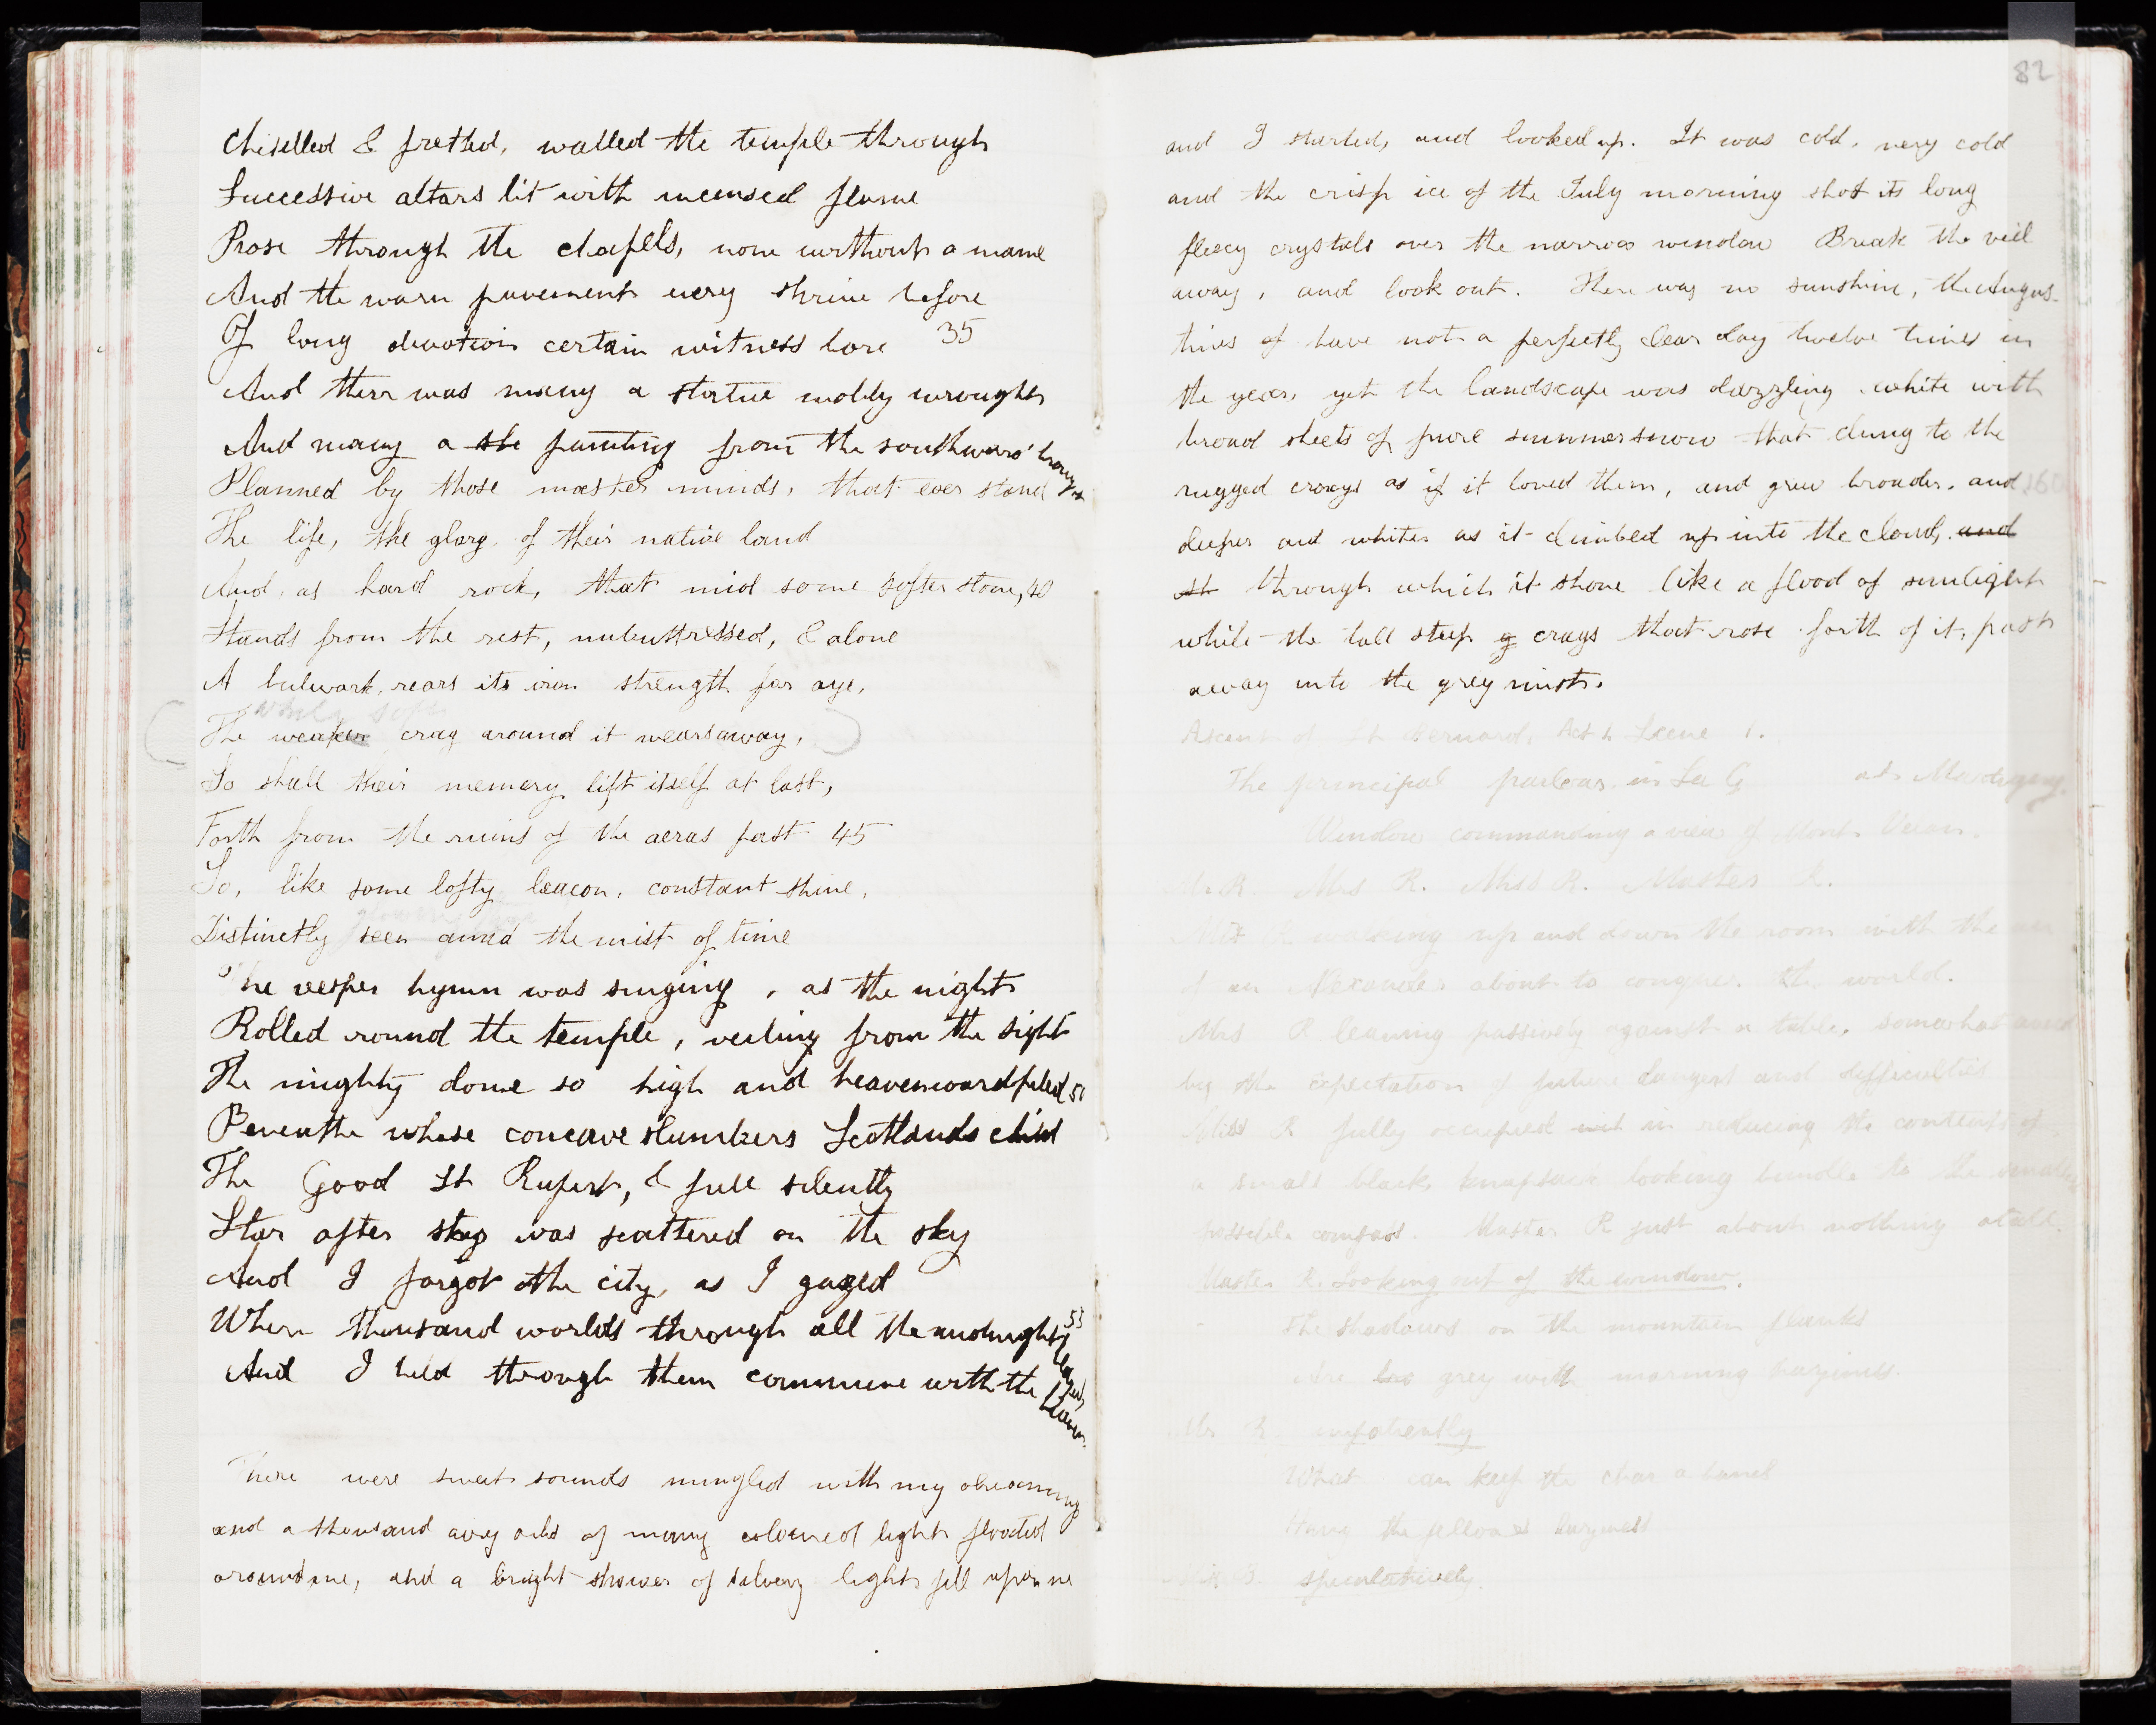 Chiselled & fretted, walled the temple through
Successive altars lit with incensed flame
Rose through the chapells, none without a name
And the warn pavement every shrine before
Of long devotion certain witness bore 35
And there was many a statue nobly wrought
And many a ste painting from the southward brought
Planned by those master minds, that ever stand
The life, the glory of their native land
And, as hard rock, that mid some softer stone, 40
Stands from the rest, unbuttressed, & alone
A bulwark, rears its iron strength for aye,
While soft
The weaker crag around it wears away,
So shall their memory lift itself at last,
Forth from the ruins of the aeras past 45
So, like some lofty beacon, constant shine,
Distinctly seen amid the mist of time
The vesper hymn was singing, as the night
Rolled round the temple, veiling from the sight
The mighty dome so high and heavenward piled 50
Beneathe whose concave slumbers Scotlands child
The Good St Rupert, & full silently
Star after star was scattered on the sky
And I forgot the city, as I gazed
Where thousand worlds through all the midnight blazed 55
And I held through them commune with the
There were sweet sounds mingled with my dreaming
and a thousand airy orbs of many coloured light floated
around me, and a bright shower of silvery light fell upon me
82
and I started, and looked up. It was cold, very cold
and the crisp ice of the July morning shot its long
fleecy crystals over the narrow window Break the veil
away, and look out. There was no sunshine, the Augus-
tines of have not a perfectly clear day twelve times in
the year, yet the landscape was dazzling white with
broad sheets of pure summer snow that clung to the
rugged crags as if it loved them, and grew broader, and
deeper and whiter as it climbed up into the cloud, and
st through which it shone like a flood of sunlight
while the tall steep g crags that rose forth of it, past
away into the grey mist.
Ascent of St Bernard, Act 1 Scene 1.
The principal parlour in La at Martigny.
Window commanding a view of Mont Velan.
Mr R. Mrs R. Miss R. Master R.
walking up and down the room with the air
of an Alexander about to conquer the world.
Mrs R leaning passively against a table, somewhat
by the expectation of future dangers and difficulties
Miss R fully occupied in reducing the contents of
a small black knapsack looking bundle to the smallest
possible compass. Master R just about nothing at all.
Master R. Looking out of the window.
The shadows on the mountain flanks
Are grey with morning haziness.
Mr R impatiently
What can keep the char a banc
Hang the fellows laziness
speculatively.